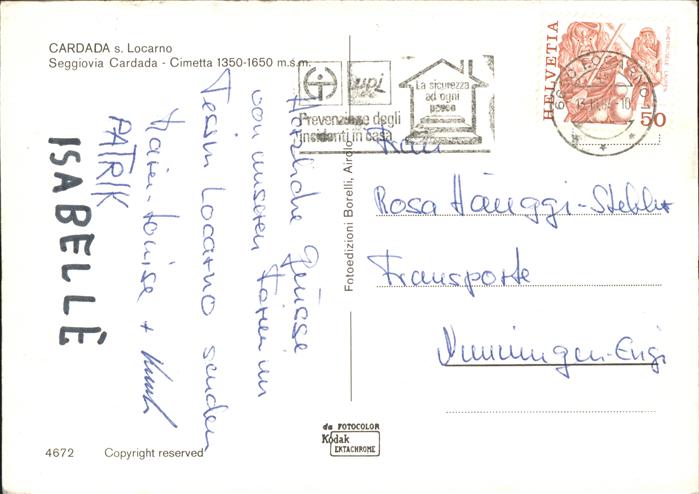 CARDADA s. Locarno
Seggiovia Cardada - Cimetta 1350-1650 m.s.m.
upi
La sicurezza
ad ogni
passo
Prevenzione degli
incidenti in casa
HELVETIA
50
6600 LOCARNO 1
Herzliche Grüsse
von unseren Ferien im
Tessin Locarno senden
Marie-Louise + Kurt
PATRIK
ISABELLE
Fotoedizioni Borelli, Airolo
Frau
Rosa Hänggi-Stebler
Transporte
Nunningen-Engi
da FOTOCOLOR
Kodak
EKTACHROME
4672 Copyright reserved